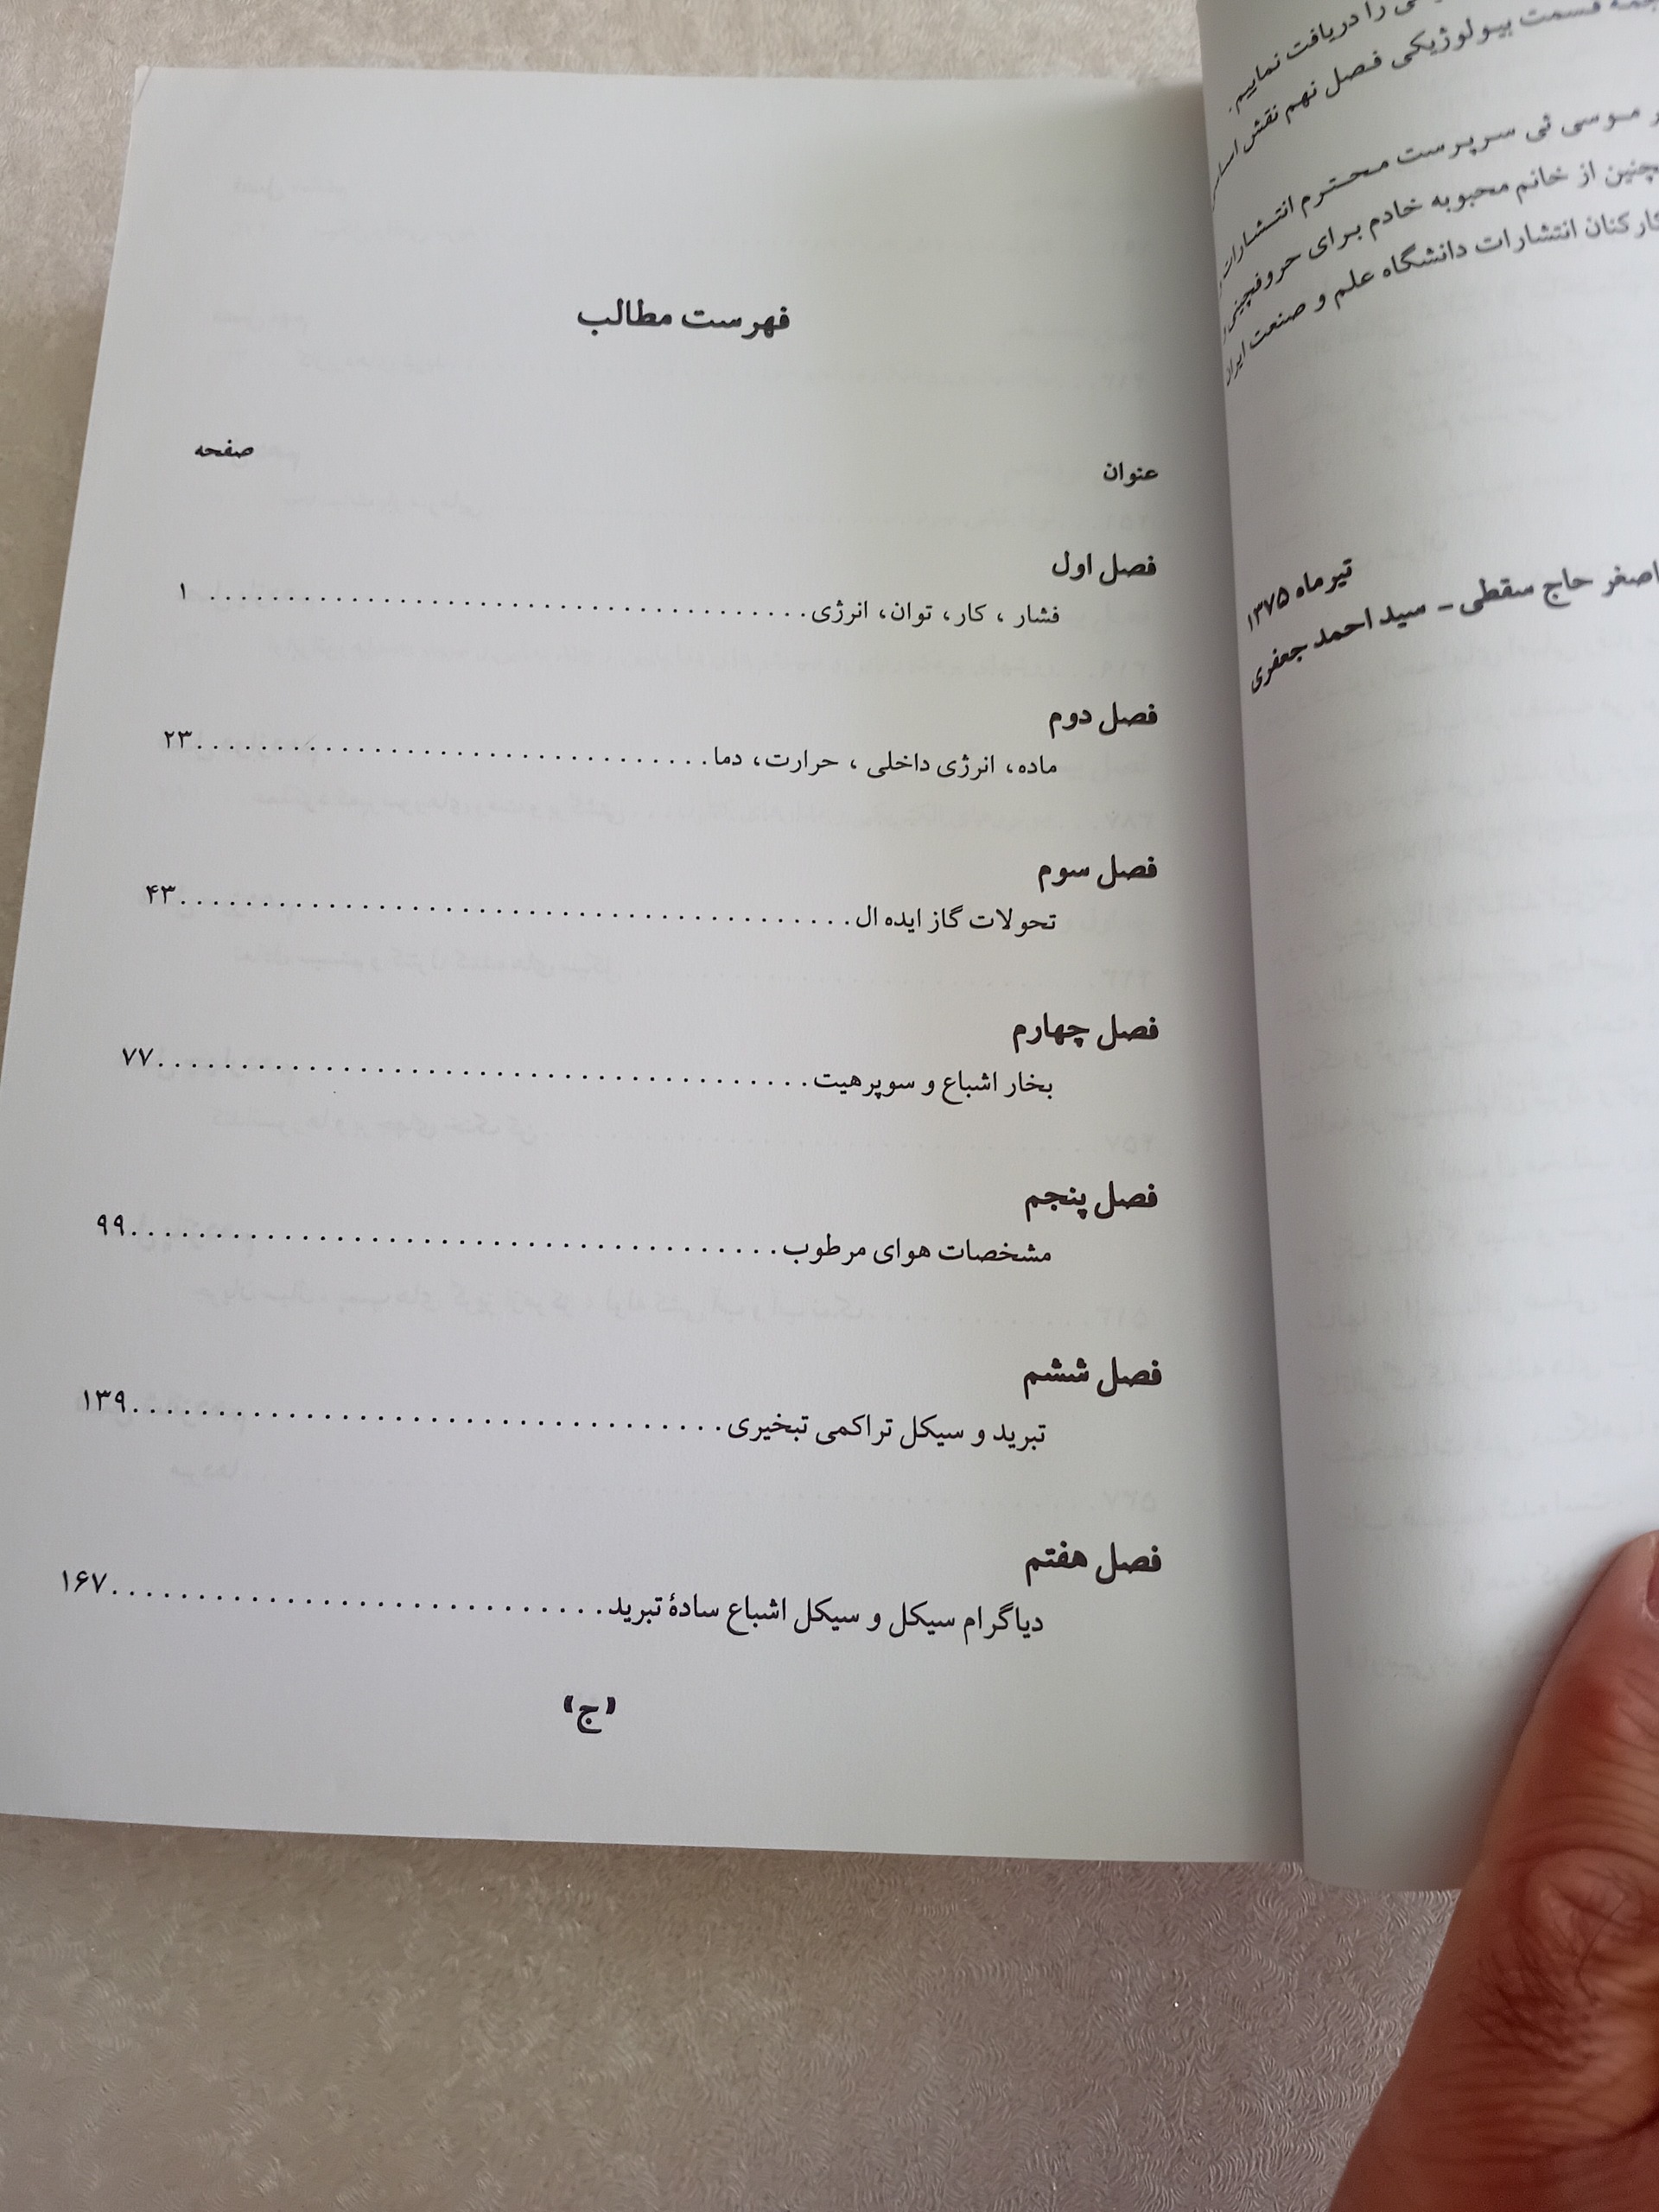 را دریافت نماییم.
قسمت بیولوژیکی فصل نهم نقش
موسی ئی سرپرست محترم انتشارات
از خانم محبوبه خادم برای حروفچینی
کارکنان انتشارات دانشگاه علم و صنعت ایران
تیرماه ۱۳۷۵
اصغر حاج سقطی - سید احمد جعفری
فهرست مطالب
عنوان صفحه
فصل اول
فشار ، کار، توان، انرژی ........................................ ۱
فصل دوم
ماده، انرژی داخلی ، حرارت، دما ................................ ۲۳
فصل سوم
تحولات گاز ایده ال .......................................... ۴۳
فصل چهارم
بخار اشباع و سوپرهیت ........................................ ۷۷
فصل پنجم
مشخصات هوای مرطوب ........................................ ۹۹
فصل ششم
تبرید و سیکل تراکمی تبخیری .................................. ۱۳۹
فصل هفتم
دیاگرام سیکل و سیکل اشباع سادهٔ تبرید ............................ ۱۶۷
«ج»